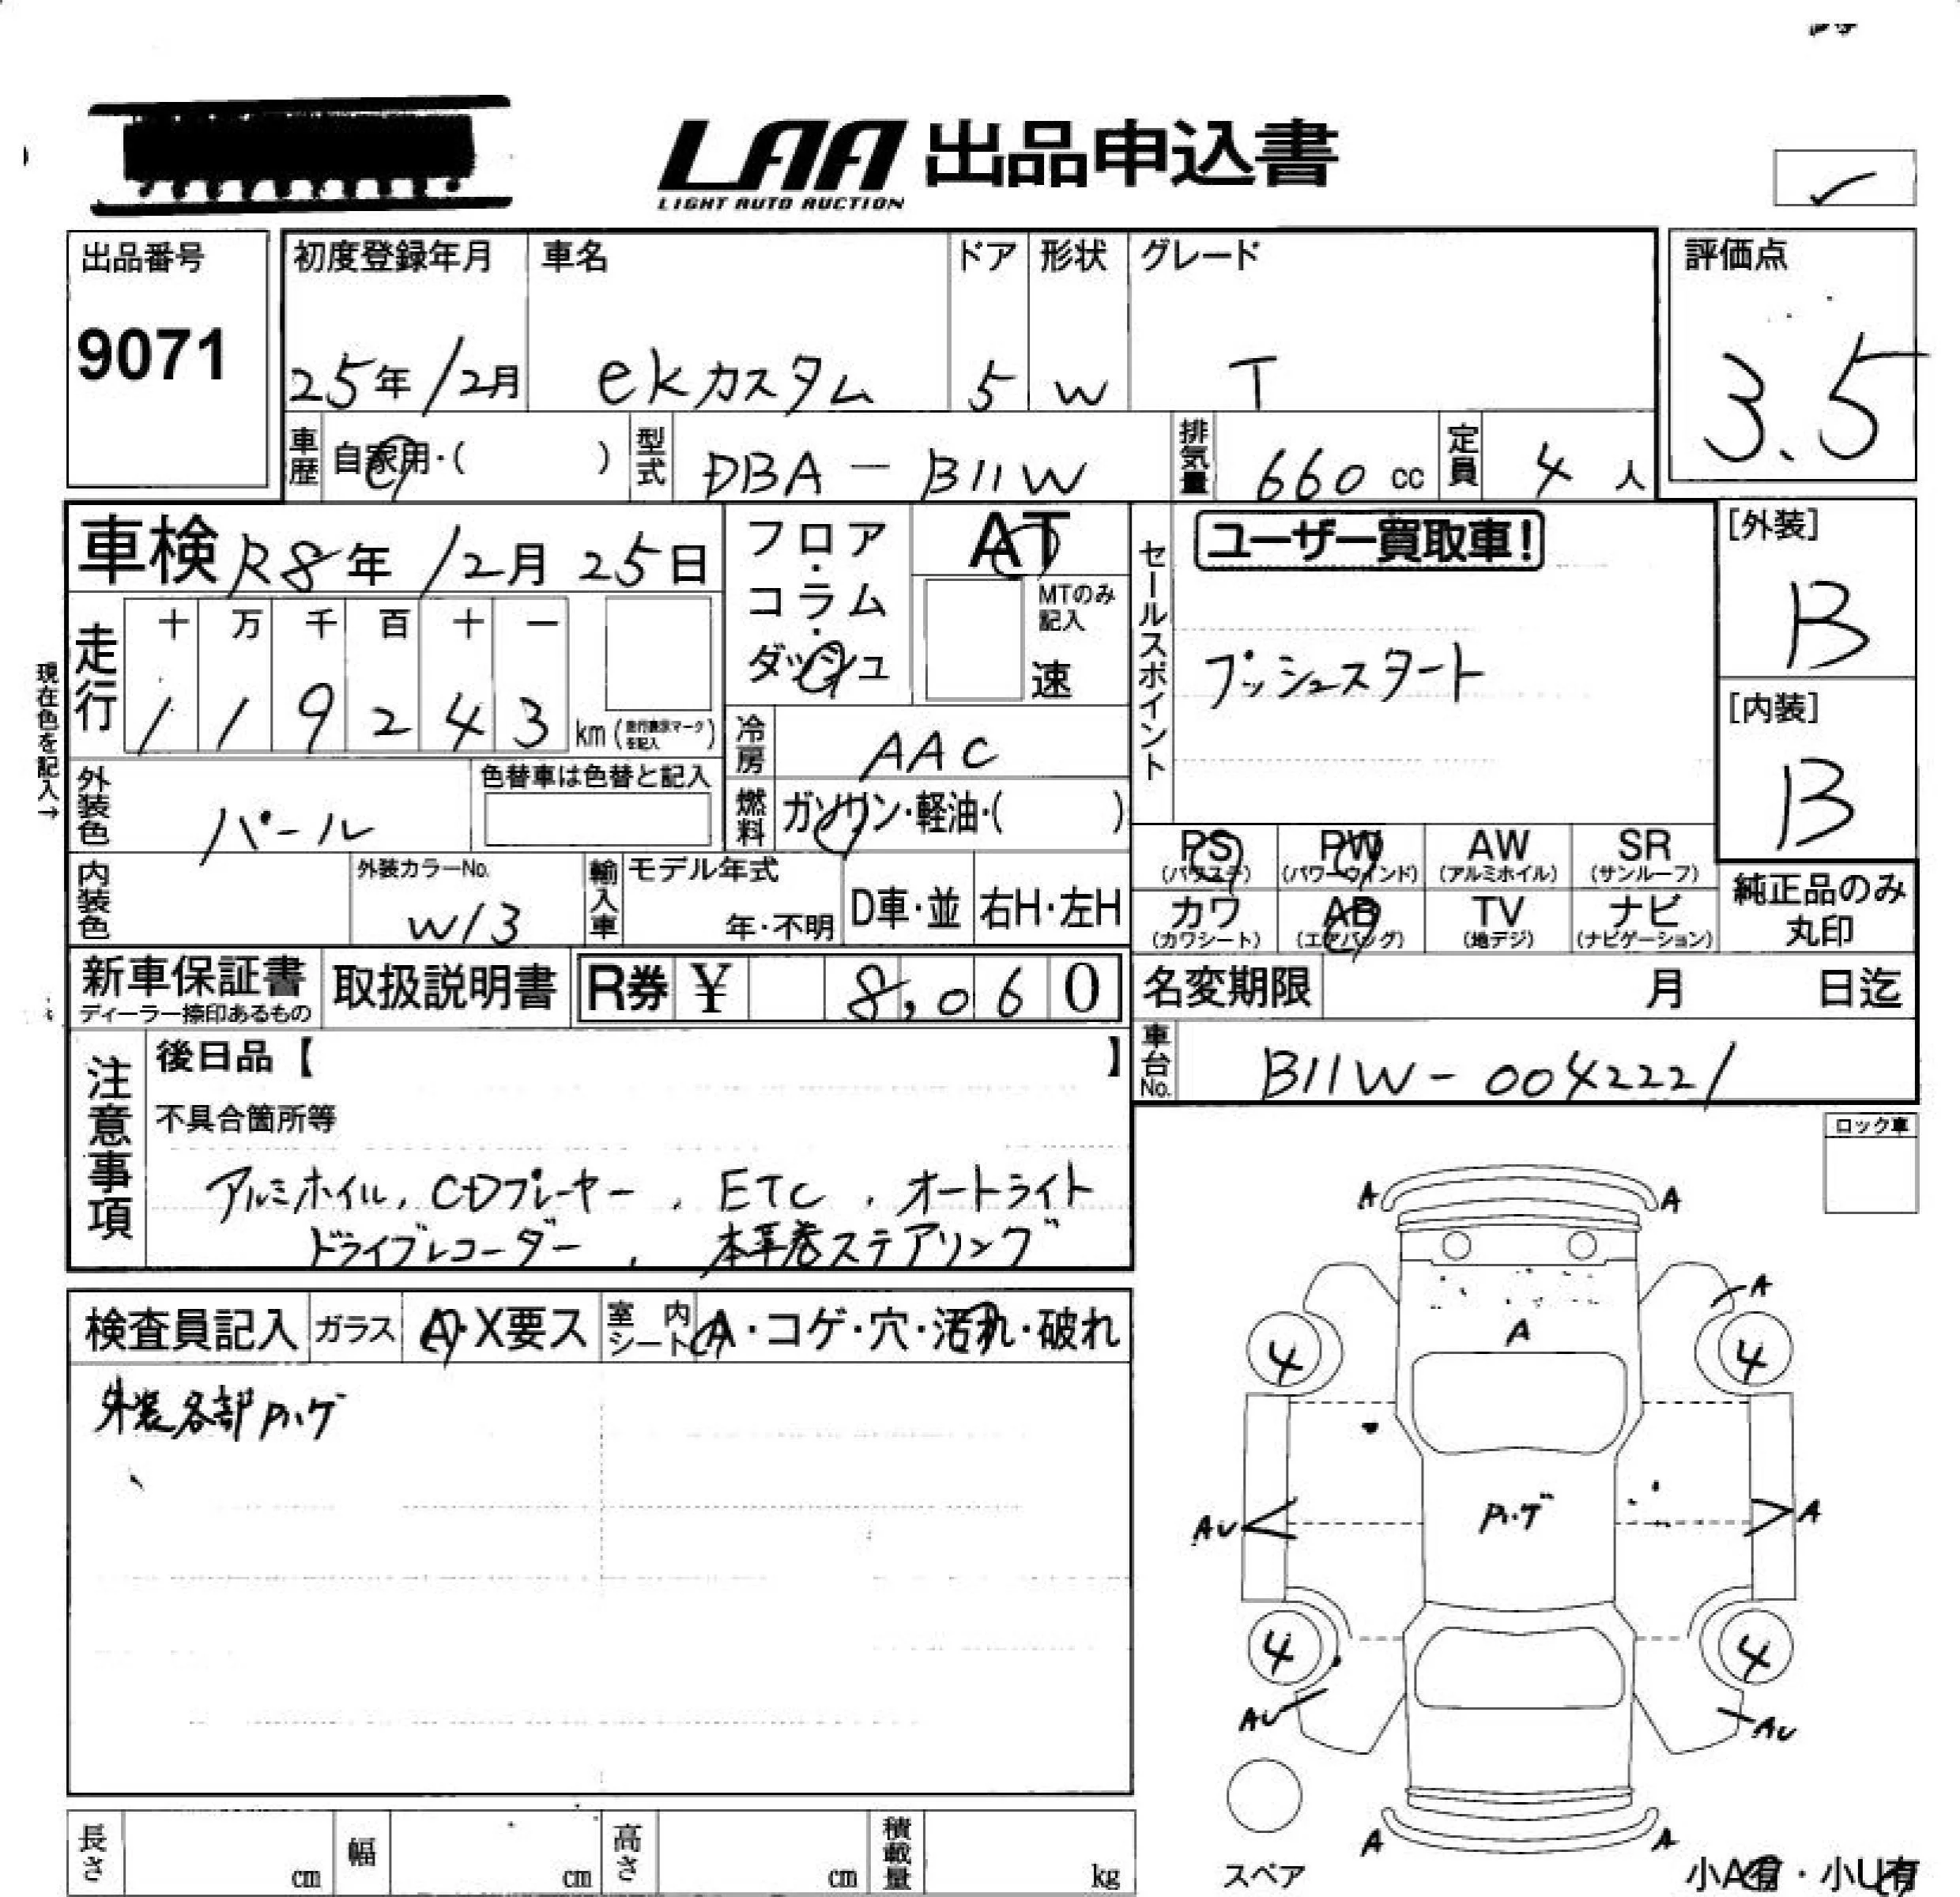 LAA 出品申込書
LIGHT AUTO AUCTION
出品番号
9071
初度登録年月
25年12月
車名
ekカスタム
ドア
5
形状
W
グレード
T
評価点
3.5
車歴 自家用・( )
型式 DBA-B11W
排気量 660 cc
定員 4 人
車検 R8年12月25日
走行 十 万 千 百 十 一
119243 km (走行表示マークを記入)
現在色を記入→
フロア・コラム・ダッシュ
AT
MTのみ記入
速
冷房 AAC
燃料 ガソリン・軽油・( )
セールスポイント
ユーザー買取車!
プッシュスタート
[外装]
B
[内装]
B
外装色 パール
色替車は色替と記入
内装色
外装カラーNo.
W13
輸入車
モデル年式
年・不明
D車・並
右H・左H
PS (パワステ)
PW (パワーウインド)
AW (アルミホイル)
SR (サンルーフ)
カワ (カワシート)
AB (エアバッグ)
TV (地デジ)
ナビ (ナビゲーション)
純正品のみ丸印
新車保証書
ディーラー捺印あるもの
取扱説明書
R券 ¥ 8,060
名変期限 月 日迄
車台No. B11W-0042221
注意事項
後日品【 】
不具合箇所等
アルミホイル, CDプレーヤー, ETC, オートライト
ドライブレコーダー, 本革巻ステアリング
ロック車
検査員記入
ガラス A・X要ス
室内シート A・コゲ・穴・汚れ・破れ
外装各部Pハゲ
A A
A
A
4 4
AU Pハゲ A
4 4
AU AU
A A
スペア
小A有・小U有
長さ cm
幅 cm
高さ cm
積載量 kg